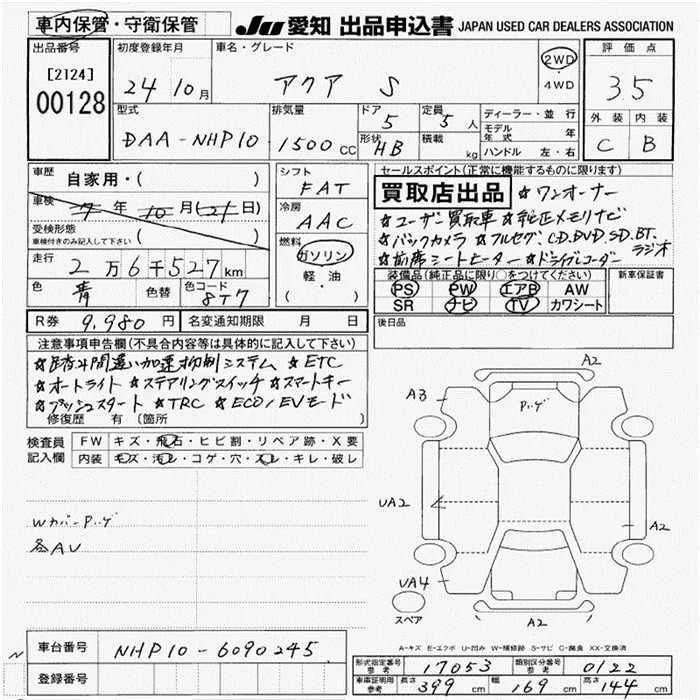 車内保管・守衛保管 JU 愛知 出品申込書 JAPAN USED CAR DEALERS ASSOCIATION
出品番号 初度登録年月 車名・グレード 評価点
[2124] 24 10月 アクア S 2WD 3.5
00128 ・4WD
型式 排気量 ドア 定員 ディーラー・並行 外装 内装
DAA-NHP10 1500CC 5 5人 モデル年式 年 C B
形状 HB 積載 kg ハンドル 左・右
車歴 自家用・( ) シフト FAT セールスポイント(正常に機能するものに限ります)
車検 年10月(21日) 冷房 AAC 買取店出品 ☆ワンオーナー
受検形態 ☆ユーザー買取車 ☆純正メモリナビ
車検付きのみ記入して下さい ( ) 燃料 ☆バックカメラ ☆フルセグ.CD.DVD.SD.BT.ラジオ
走行 2万6千527km ガソリン ☆前席シートヒーター ☆ドライブレコーダー
色 青 色替 色コード 8T7 軽・油 ( )
装備品(純正品に限り○をつけてください) 新車保証書
PS PW エアB AW
SR ナビ TV カワシート
R券 9,980円 名変通知期限 月 日 後日品
注意事項申告欄(不具合内容等は具体的に記入して下さい)
☆踏み間違い加速抑制システム ☆ETC
☆オートライト ☆ステアリングスイッチ ☆スマートキー
☆プッシュスタート ☆TRC ☆ECO/EVモード
修復歴 有 〔箇所 〕
検査員記入欄 FW キズ・飛石・ヒビ割・リペア跡・X要
内装 キズ・汚レ・コゲ・穴・スレ・キレ・破レ
Wカバーパーゲ
各AU
A2
A3
パーゲ
UA2
A2
UA4
スペア
A2
A-キズ E-エクボ U-凹み W-補修跡 S-サビ C-腐食 XX-交換済
車台番号 NHP10-6090245
登録番号
形式指定番号 参考 17053 類別区分番号 参考 0122
車庫証明用 参考 長さ 399cm 幅 169cm 高さ 144cm